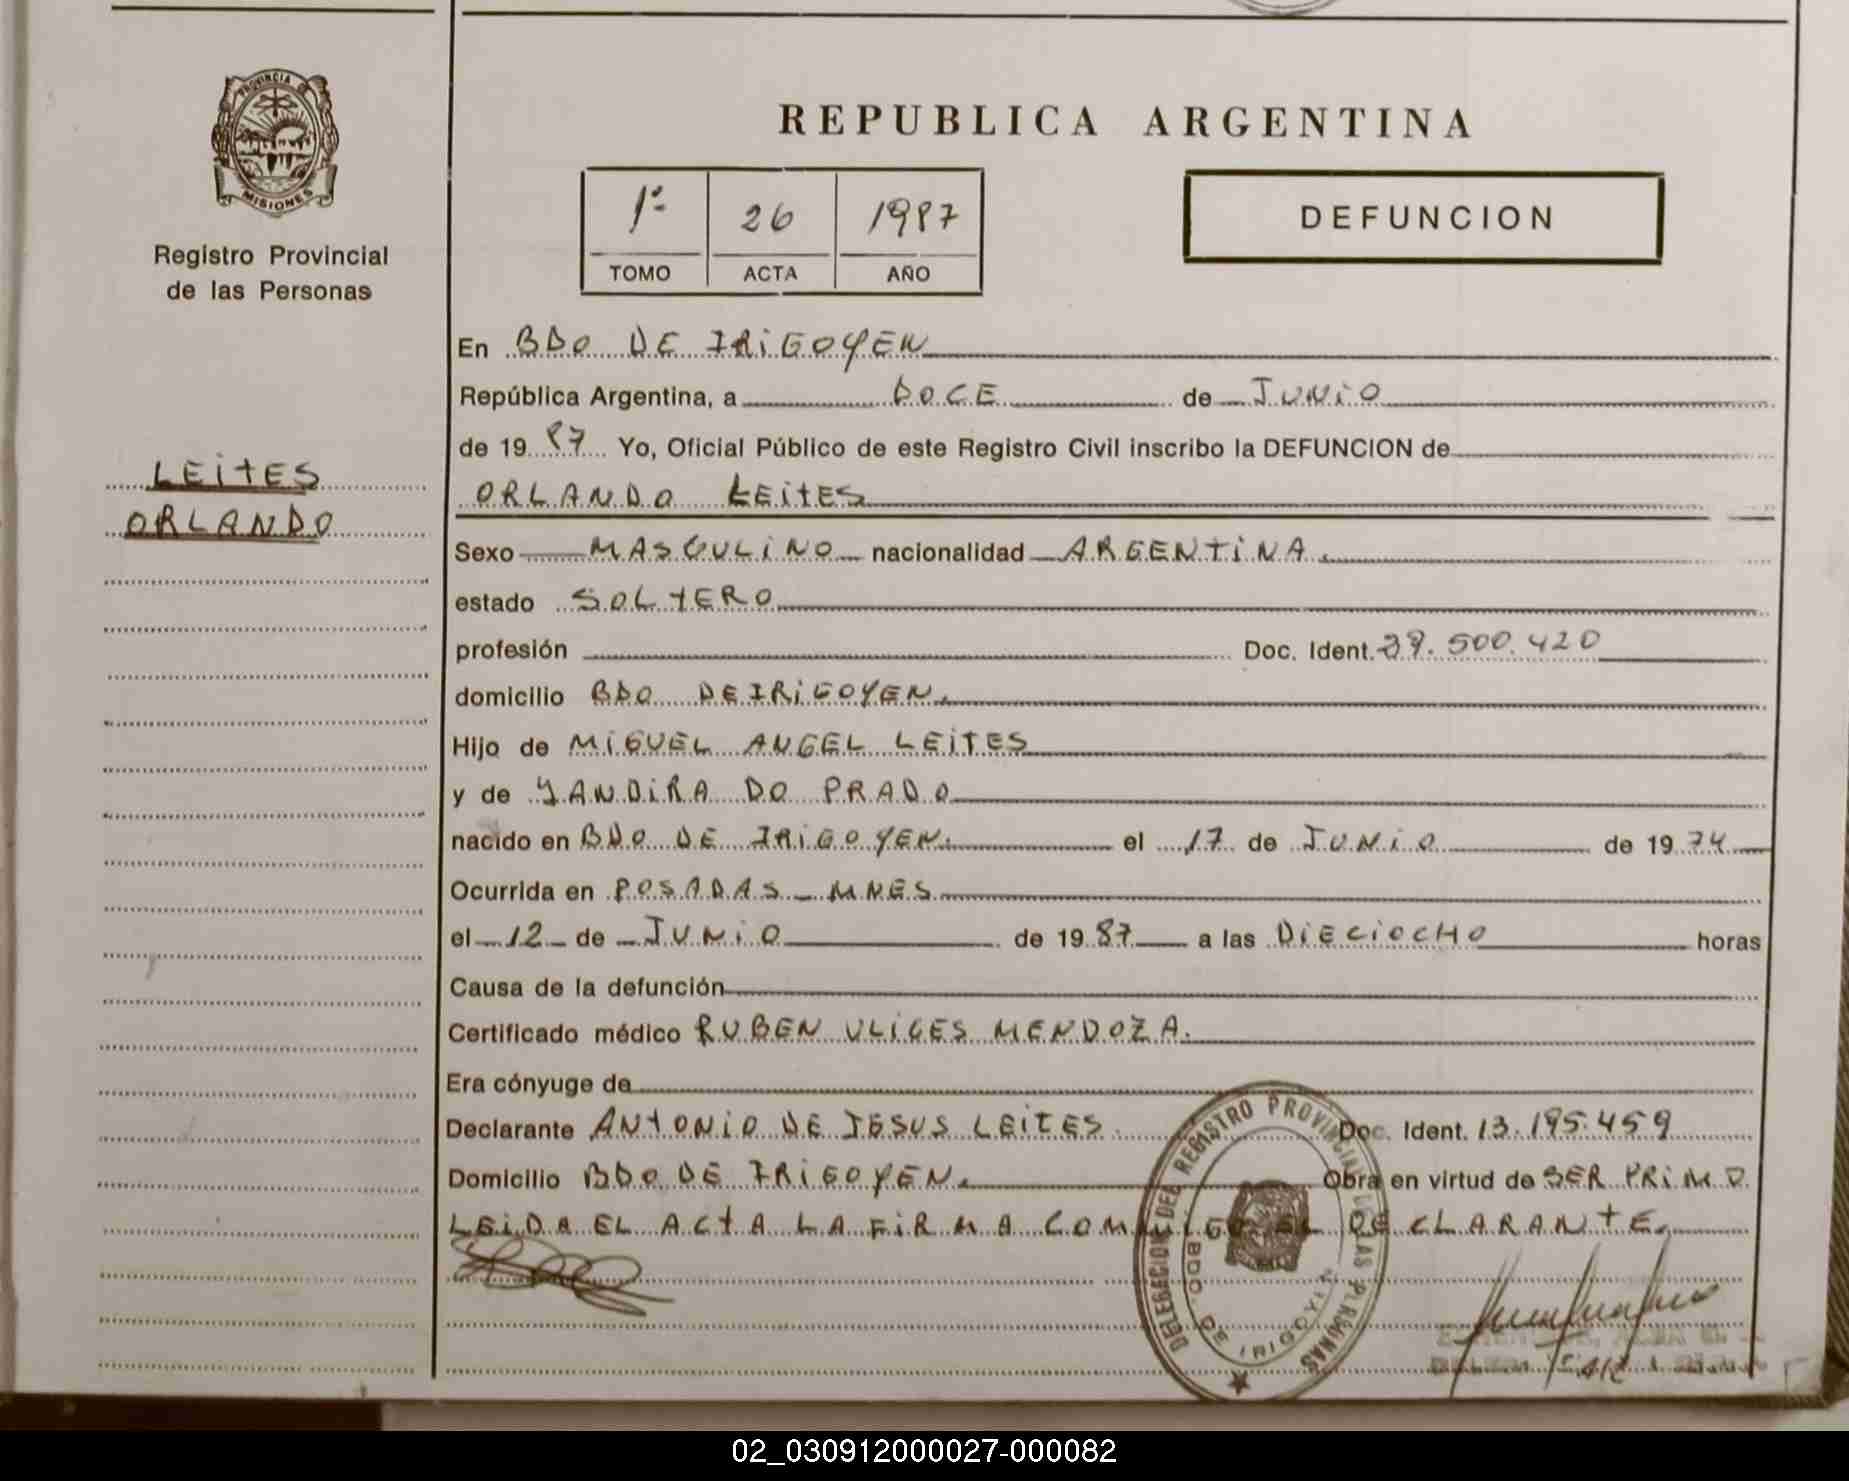 PROVINCIA DE
MISIONES
Registro Provincial
de las Personas
LEITES
ORLANDO
REPUBLICA ARGENTINA
1º 26 1987
TOMO ACTA AÑO
DEFUNCION
En BDO DE IRIGOYEN
República Argentina, a DOCE de JUNIO
de 19 87 Yo, Oficial Público de este Registro Civil inscribo la DEFUNCION de
ORLANDO LEITES
Sexo MASCULINO nacionalidad ARGENTINA.
estado SOLTERO
profesión Doc. Ident. 500.420
domicilio BDO DE IRIGOYEN.
Hijo de MIGUEL ANGEL LEITES
y de YANDIRA DO PRADO
nacido en BDO DE IRIGOYEN. el 17 de JUNIO de 19 74
Ocurrida en POSADAS - MNES.
el 12 de JUNIO de 19 87 a las DIECIOCHO horas
Causa de la defunción
Certificado médico RUBEN ULICES MENDOZA.
Era cónyuge de
Declarante ANTONIO DE JESUS LEITES Doc. Ident. 13.195.459
Domicilio BDO DE IRIGOYEN. Obra en virtud de SER PRIMO
LEIDA EL ACTA LA FIRMA COMMIGO EL DECLARANTE.
DELEGACION DEL REGISTRO PROVINCIAL DE LAS PERSONAS
BDO. DE IRIGOYEN
02_030912000027-000082